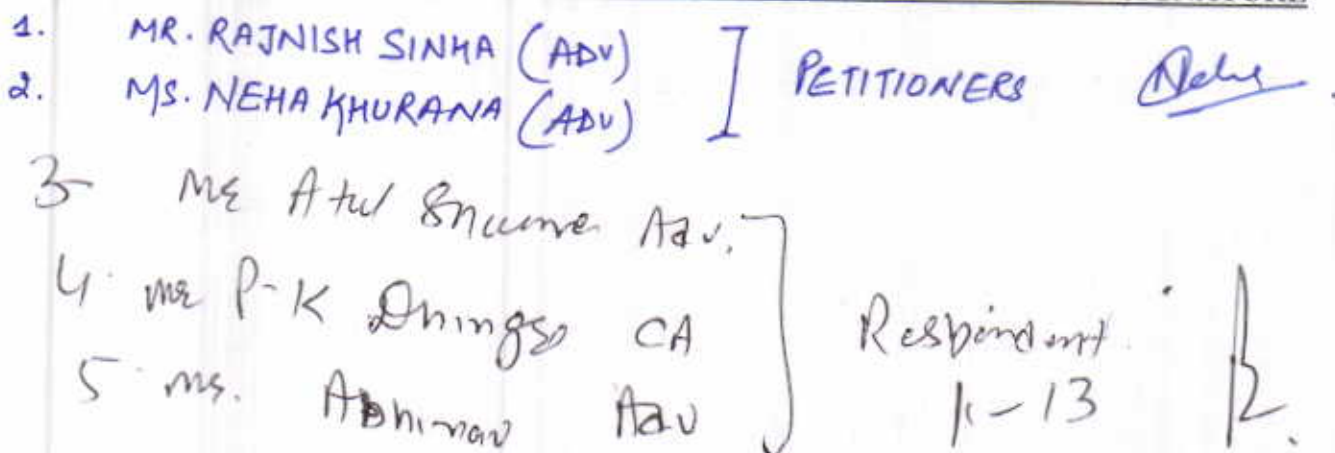 1. MR. RAJNISH SINHA (ADV)
2. MS. NEHA KHURANA (ADV)
] PETITIONERS Neha
3- Mr Atul Adv.
4. Mr P-K Dhingra CA
5. Ms. Abhinav Adv
Respondent.
1-13